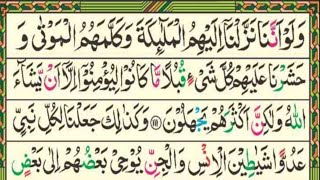 وَلَوْ اَنَّنَا نَزَّلْنَاۤ اِلَيْهِمُ الْمَلٰٓئِكَةَ وَكَلَّمَهُمُ الْمَوْتٰى وَ
حَشَرْنَا عَلَيْهِمْ كُلَّ شَىْءٍ قُبُلًا مَّا كَانُوْا لِيُؤْمِنُوْۤا اِلَّاۤ اَنْ يَّشَآءَ
اللّٰهُ وَلٰكِنَّ اَكْثَرَهُمْ يَجْهَلُوْنَ ۝۱۱۱ وَكَذٰلِكَ جَعَلْنَا لِكُلِّ نَبِىٍّ
عَدُوًّا شَيٰطِيْنَ الْاِنْسِ وَالْجِنِّ يُوْحِىْ بَعْضُهُمْ اِلٰى بَعْضٍ